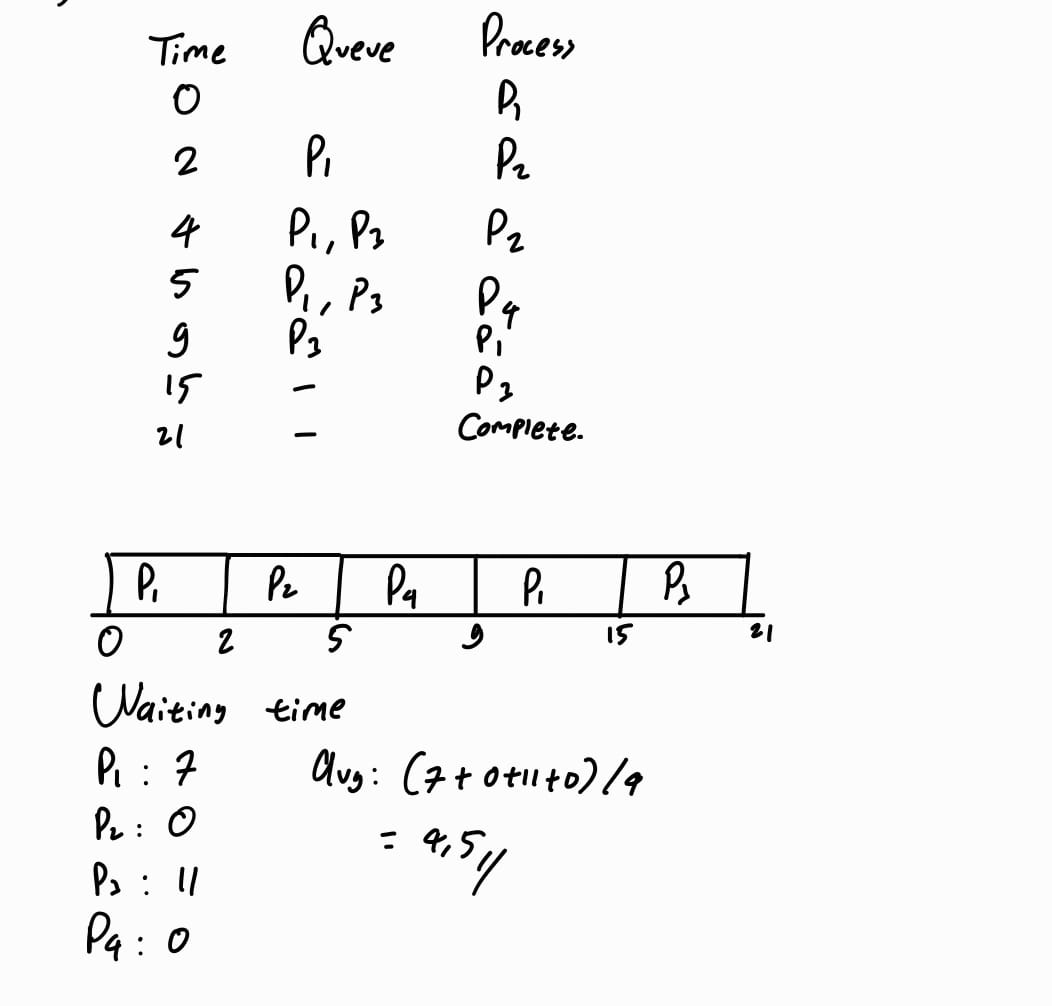 Time Queue Process
0 P1
2 P1 P2
4 P1, P3 P2
5 P1, P3 P4
9 P3 P1
15 - P3
21 - Complete.
P1 P2 P4 P1 P3
0 2 5 9 15 21
Waiting time
P1 : 7 avg: (7+0+11+0)/4
P2 : 0 = 4,5//
P3 : 11
P4 : 0